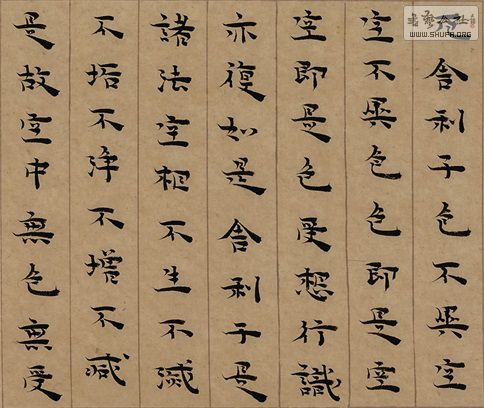 書藝公社
WWW.SHUFA.ORG
舍利子色不異空
空不異色色即是空
空即是色受想行識
亦復如是舍利子是
諸法空相不生不滅
不垢不淨不增不減
是故空中無色無受